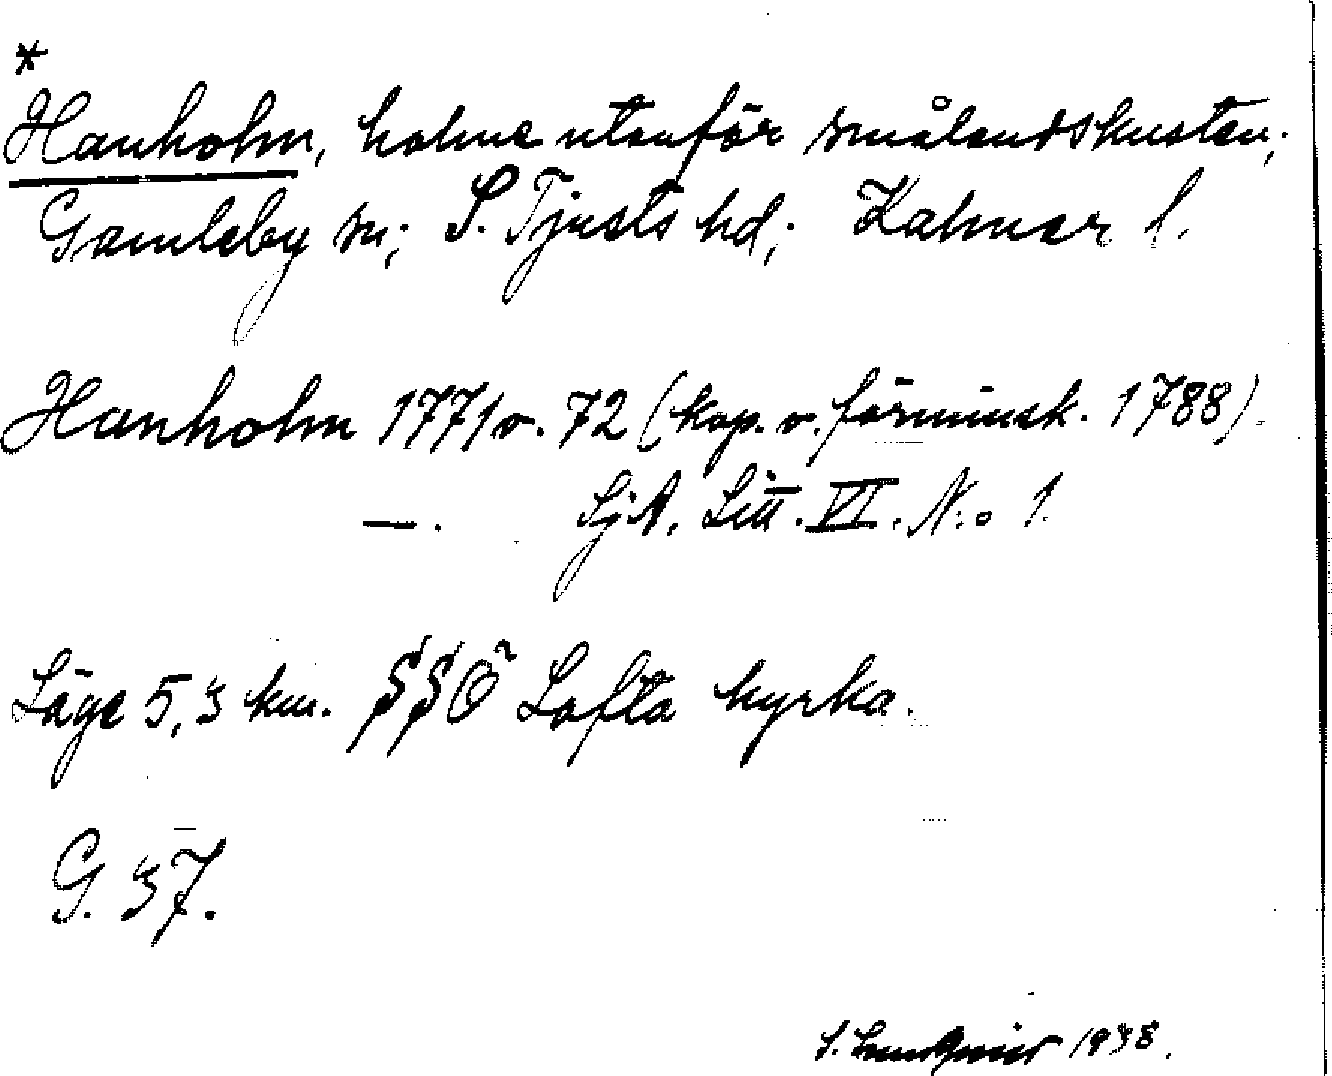 *
Hanholm, holme utanför smålandskusten;
Gamleby sn; S. Tjusts hd; Kalmar l.
Hanholm 1771 o. 72 (kop. o. förminsk. 1788)
—. SjA. Litt. VI. N:o 1.
Läge 5,3 km. SSÖ Lofta kyrka.
G. 37.
1938.